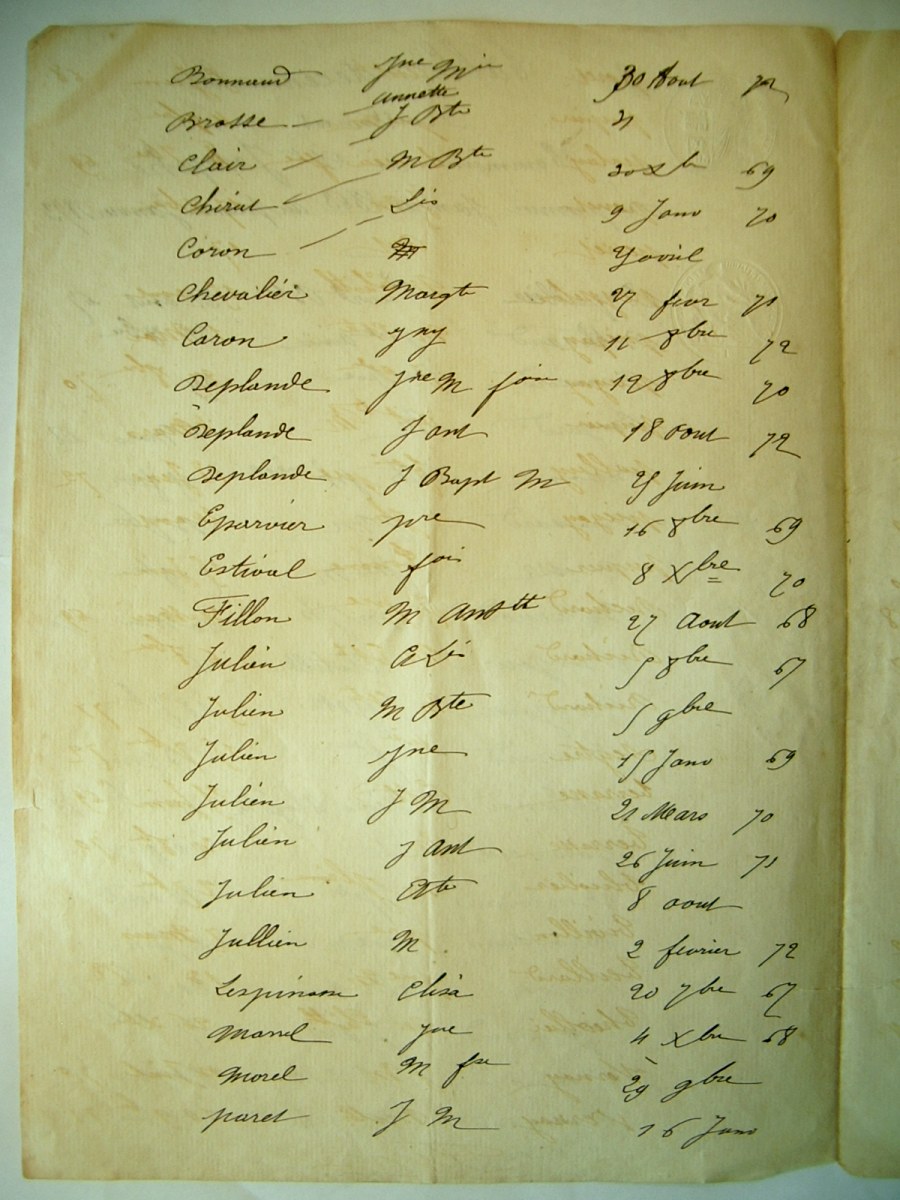 Bonnaud Jne Mie 30 Aout 72
Annette
Brosse J Bte 4
Clair M Bte 20 Xb 69
Chirat Lis 9 Janv 70
Coron 7 avril
Chevaliér Margte 27 fevr 71
Caron 11 8bre 72
Deplande Jne M foi 19 8bre 70
Deplande J ant 18 aout 72
Deplande J Bapt M 25 Juin
Eparvier pre 16 8bre 69
Estival foi 8 Xbre 70
Fillon M Antte 27 Aout 68
Julién C Lis 5 8bre 67
Julien M Bte 5 9bre
Julien Jne 15 Janv 69
Julien J M 21 Mars 70
Julien J Ant 26 Juin 71
Julien 8 aout
Jullien M 2 février 72
Lespinasse Elisa 20 7bre 67
Jne 4 Xbre 68
Morel M fse 29 9bre
paret J M 16 Janv